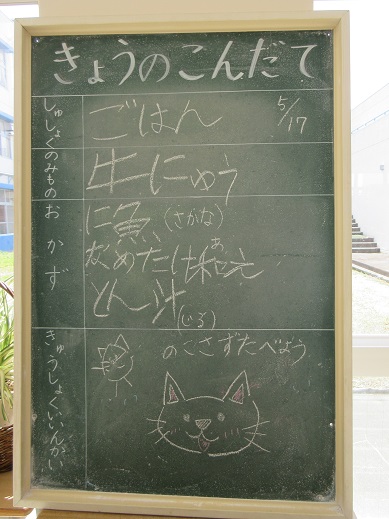 きょうのこんだて
しゅしょく ごはん 5/17
のみもの 牛にゅう
おかず に魚(さかな)
なめたけ和え(あ)
とん汁(じる)
きゅうしょくいいんかい のこさずたべよう